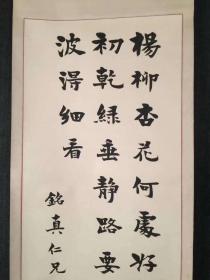 楊柳杏花何處好
初乾綠垂靜路要
波浔細看
銘真仁兄